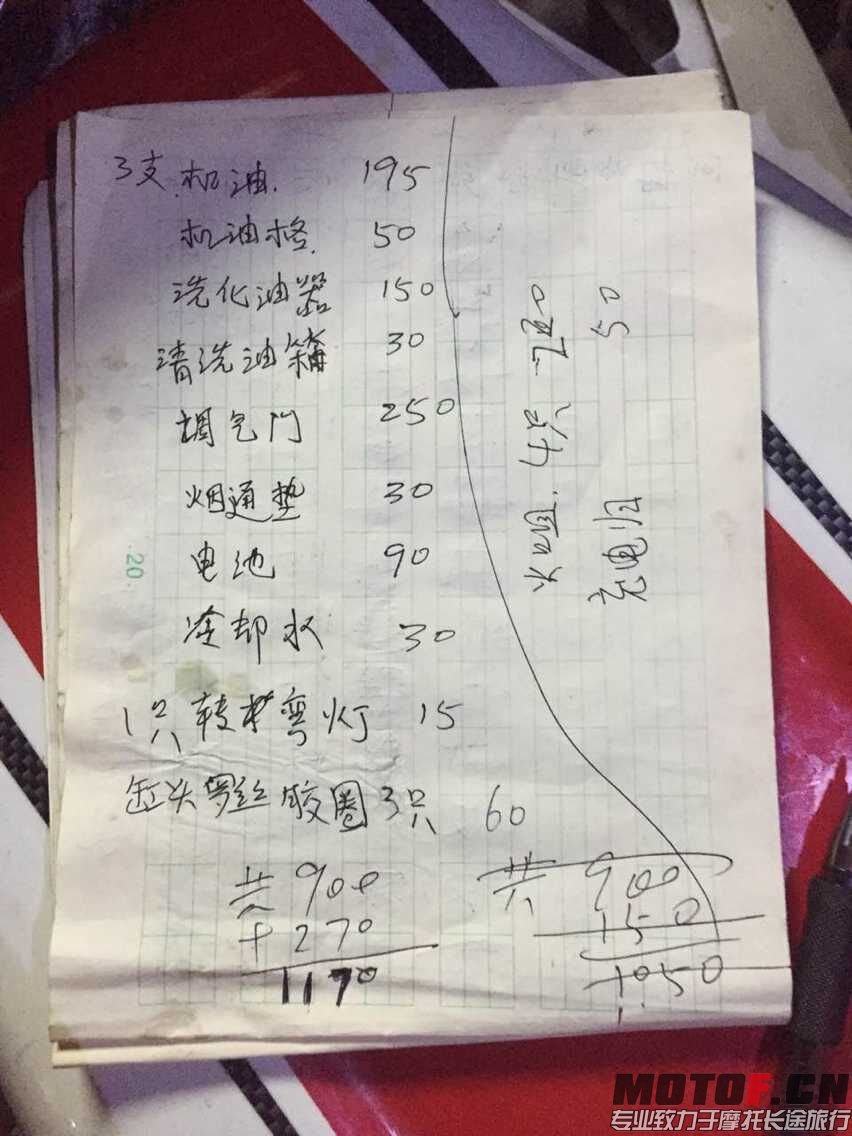 3支机油 195
机油格 50
洗化油器 150
清洗油箱 30
调气门 250
烟通垫 30
电池 90
冷却水 30
1只转弯灯 15
缸头罗丝胶圈3只 60
共900
+270
1170
共 900
150
1050
50
充电
20
MOTOF.CN
专业致力于摩托长途旅行